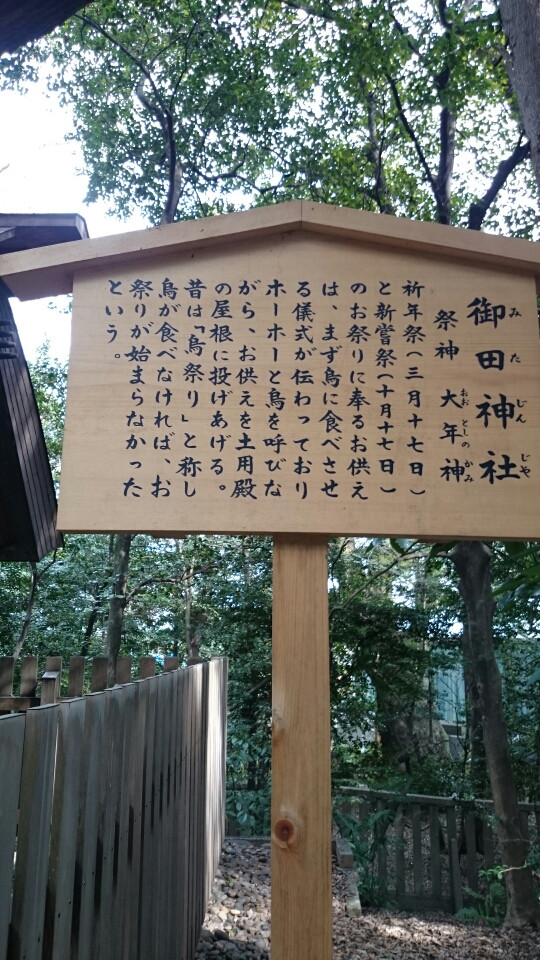 御田神社
みた じんじや
祭神 大年神
おおとしのかみ
祈年祭(三月十七日)
と新嘗祭(十月十七日)
のお祭りに奉るお供え
は、まず烏に食べさせ
る儀式が伝わっており
ホーホーと烏を呼びな
がら、お供えを土用殿
の屋根に投げあげる。
昔は「烏祭り」と称し
烏が食べなければ、お
祭りが始まらなかった
という。